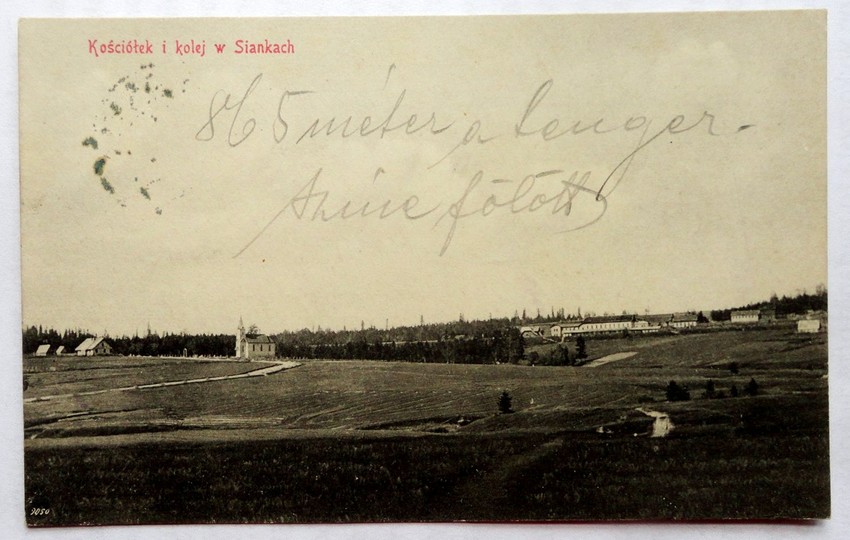 Kościółek i kolej w Siankach
865 méter a tenger-
szine fölött
9050